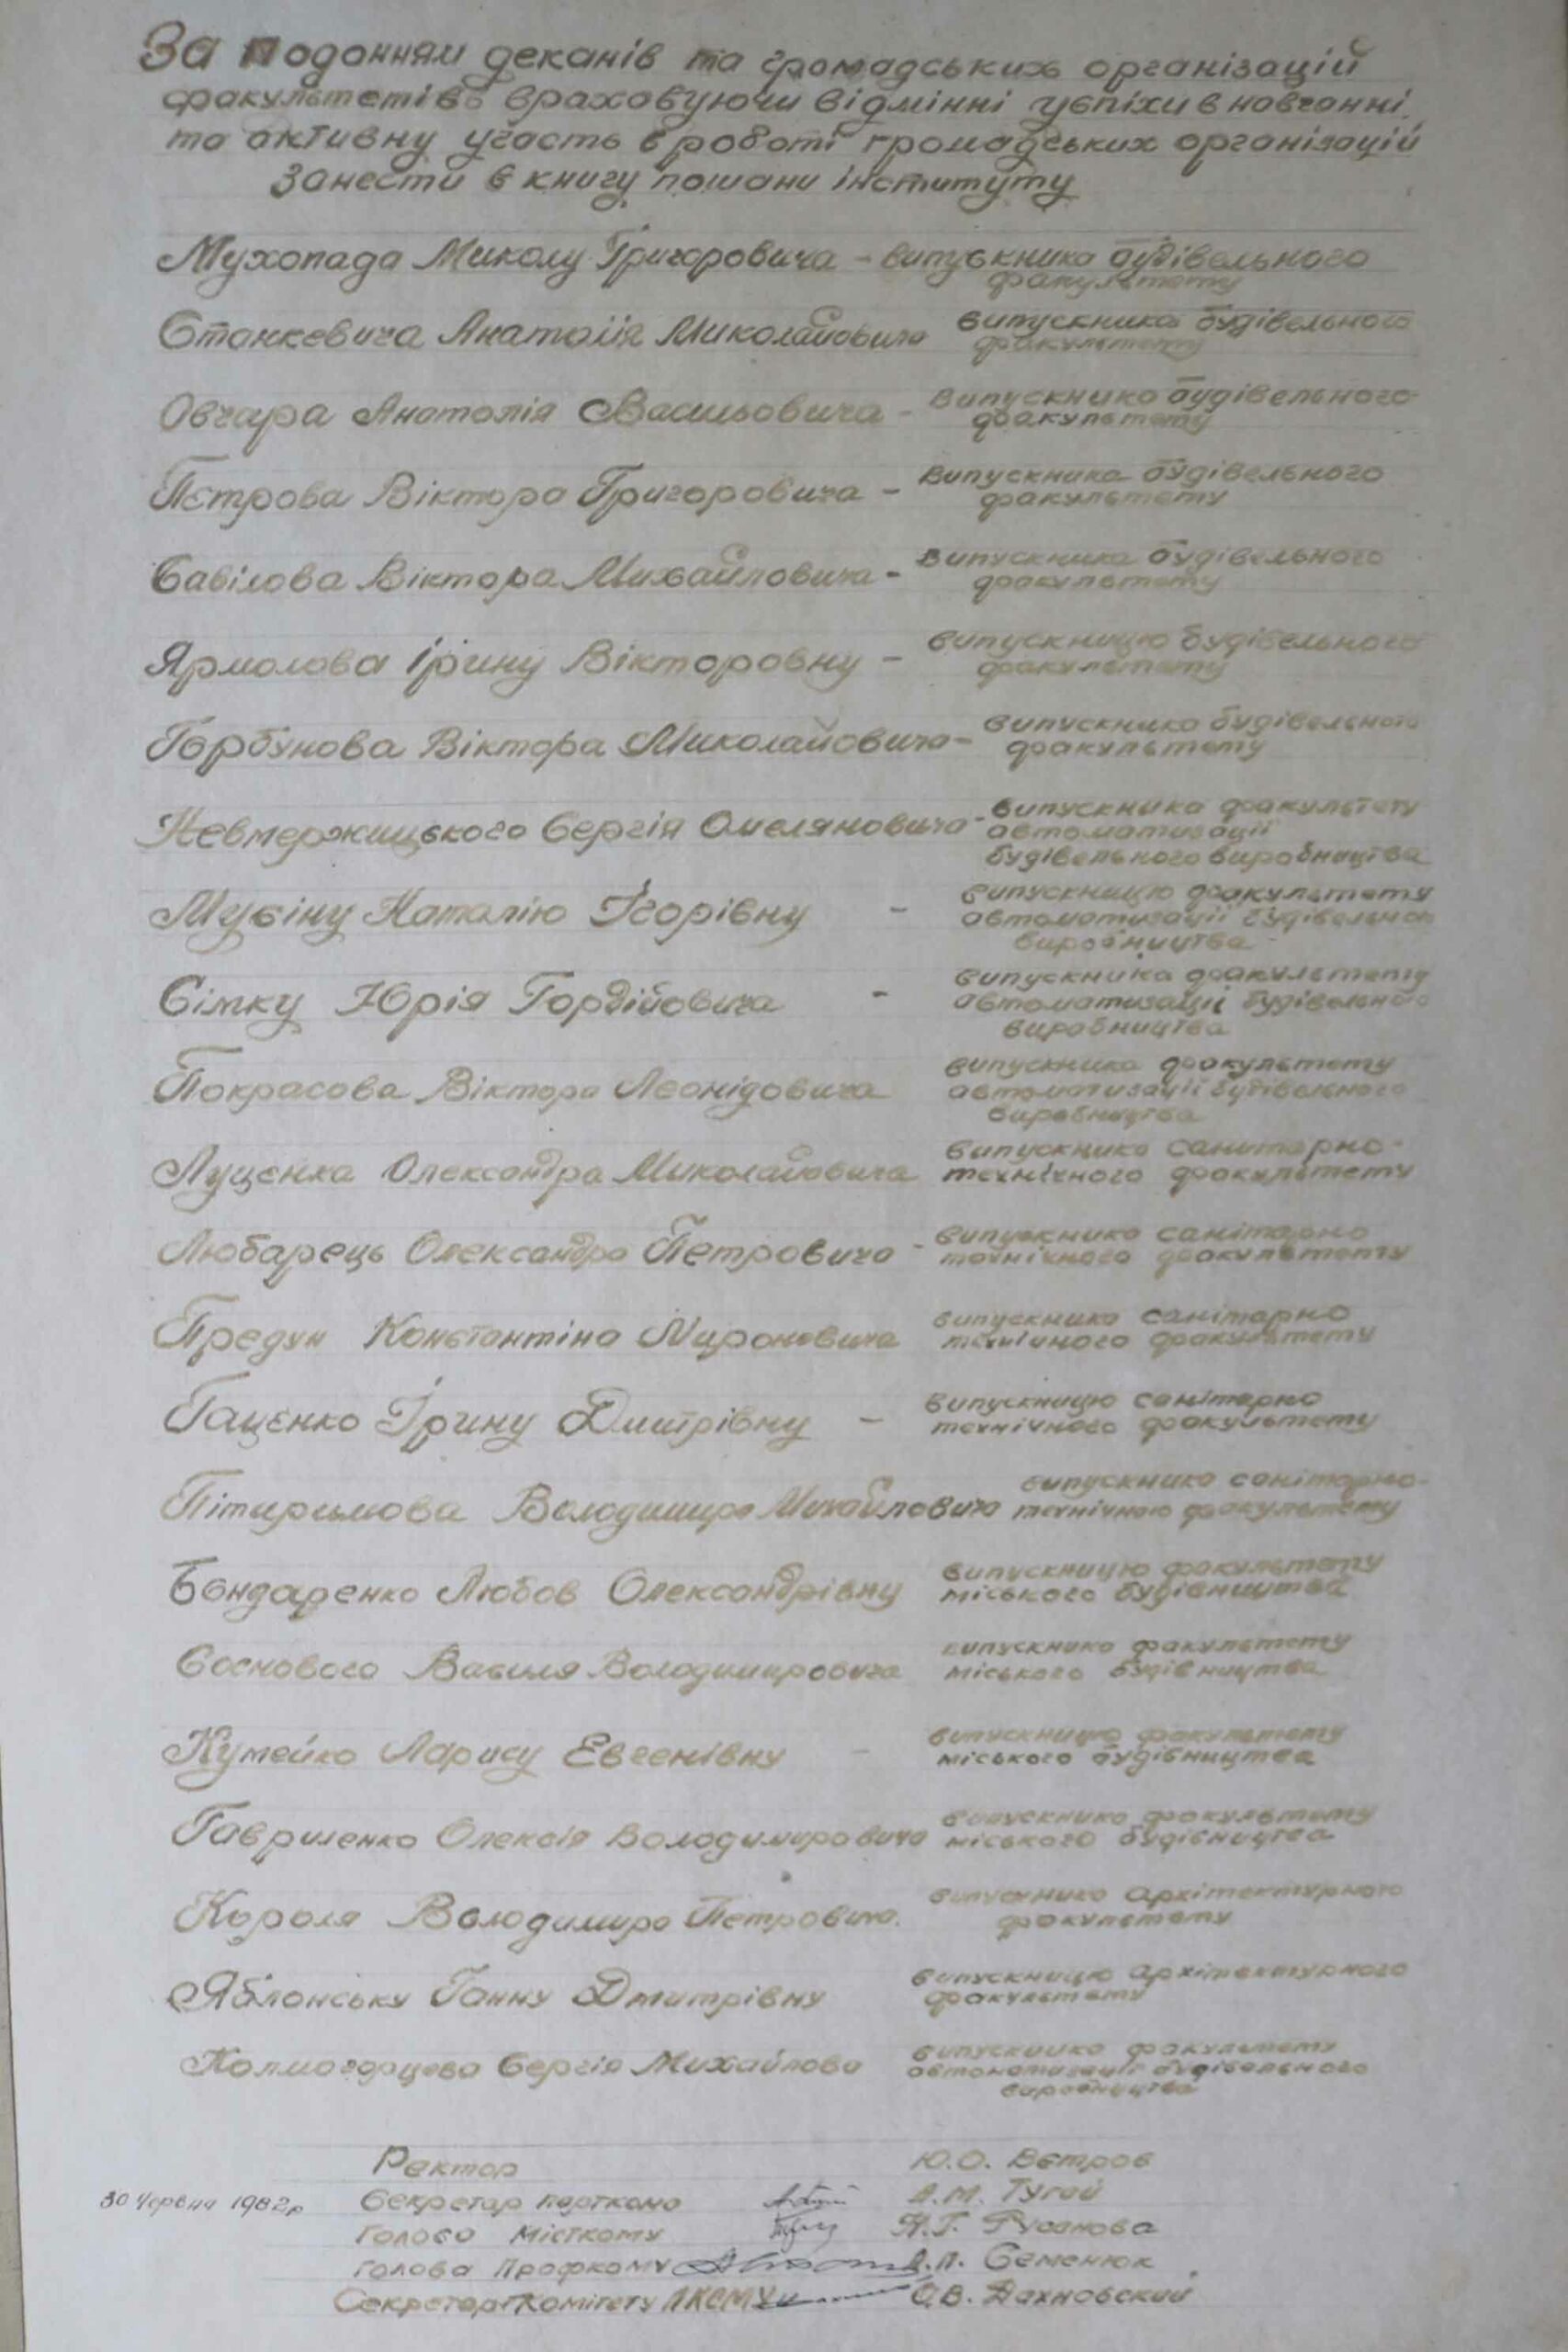 За поданням деканів та громадських організацій
факультетів враховуючи відмінні успіхи в навчанні
та активну участь в роботі громадських організацій
Занести в книгу пошани інституту
Мухопада Миколу Григоровича - випускника будівельного
факультету
Станкевича Анатолія Миколайовича випускника будівельного
факультету
Овчара Анатолія Васильовича - випускника будівельного
факультету
Петрова Віктора Григоровича - випускника будівельного
факультету
Савілова Віктора Михайловича - випускника будівельного
факультету
Ярмолова Ірину Вікторовну - випускницю будівельного
факультету
Горбунова Віктора Миколайовича - випускника будівельного
факультету
Невмержицького Сергія Омеляновича - випускника факультету
автоматизації
будівельного виробництва
Мусіну Наталію Ігорівну - випускницю факультету
автоматизації будівельного
виробництва
Сітку Юрія Гордійовича - випускника факультету
автоматизації будівельного
виробництва
Покрасова Віктора Леонідовича випускника факультету
автоматизації будівельного
виробництва
Луценка Олександра Миколайовича випускника санитарно-
технічного факультету
Любарець Олександра Петровича - випускника санітарно
технічного факультету
Предун Константіна Мироновича випускника санітарно
технічного факультету
Гаценко Ірину Дмитрівну - випускницю санітарно
технічного факультету
Пітиримова Володимира Михайловича випускника санітарно-
технічного факультету
Бондаренко Любов Олександрівну випускницю факультету
міського будівництва
Соснового Василя Володимировича випускника факультету
міського будівництва
Кумейко Ларису Евгенівну - випускницю факультету
міського будівництва
Гавриленко Олексія Володимировича випускника факультету
міського будівництва
Короля Володимира Петровича випускника архітектурного
факультету
Яблонську Ганну Дмитрівну випускницю архітектурного
факультету
Колмогорцева Сергія Михайлова випускника факультету
автоматизації будівельного
виробництва
Ректор Ю.О. Ветров
30 червня 1982р Секретар парткома А.М. Тугай
Голова місткому Н.Г. Русанова
Голова Профкому А.П. Семенюк
Секретар Комітету ЛКСМУ О.В. Дахновский